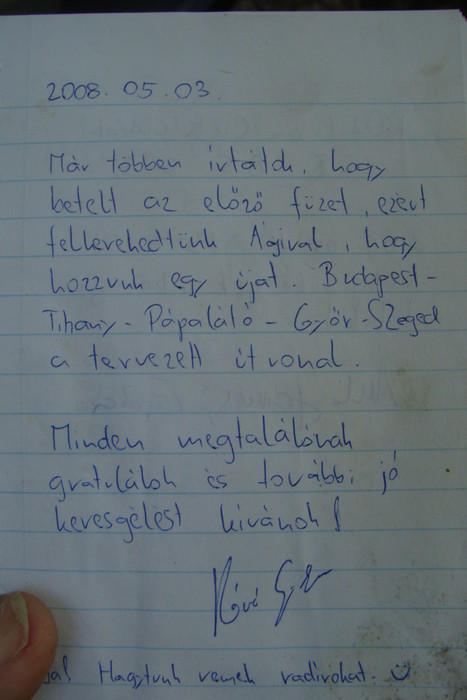 2008. 05. 03.
Már többen írtátok, hogy
betelt az előző füzet, ezért
fellkerekedtünk Ágival, hogy
hozzunk egy újat. Budapest -
Tihany - Pápaláló - Győr - Szeged
a tervezett útvonal.
Minden megtalálónak
gratulálok és további jó
keresgélést kívánok!
Hagytunk remek radírokat. ☺